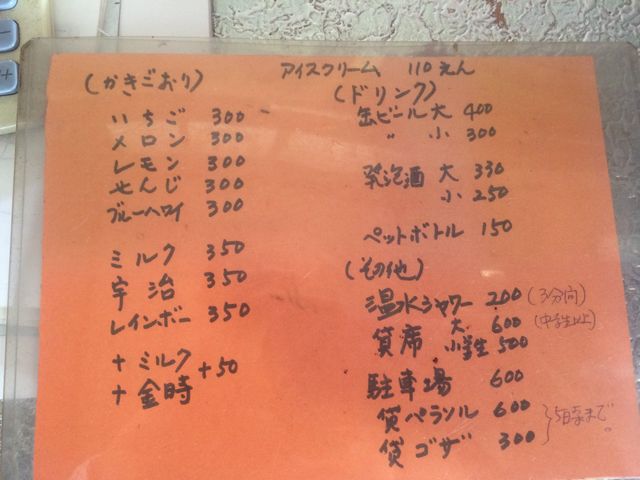 (かきごおり)
いちご 300
メロン 300
レモン 300
せんじ 300
ブルーハワイ 300
ミルク 350
宇治 350
レインボー 350
+ミルク
+金時 +50
アイスクリーム 110えん
(ドリンク)
缶ビール 大 400
〃 小 300
発泡酒 大 330
小 250
ペットボトル 150
(その他)
温水シャワー 200 (3分間)
貸席 大 600 (中学生以上)
小学生 500
駐車場 600
貸パラソル 600
貸ゴザ 300